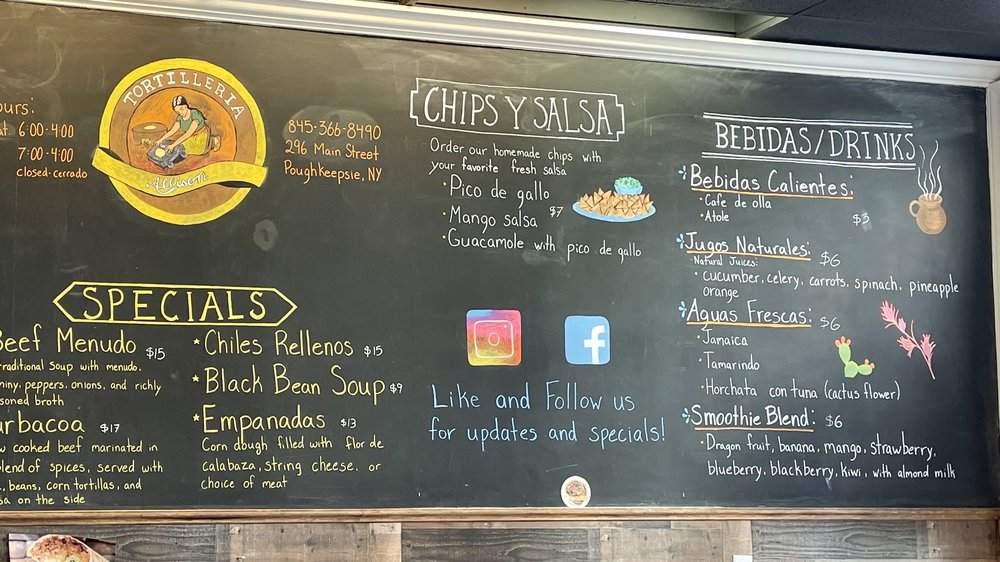 TORTILLERIA
Allison
6:00-4:00
7:00-4:00
closed-cerrado
845-366-8490
296 Main Street
Poughkeepsie, NY
SPECIALS
Beef Menudo $15
soup with menudo,
peppers, onions, and richly
broth
$17
cooked beef marinated in
blend of spices, served with
beans, corn tortillas, and
on the side
* Chiles Rellenos $15
* Black Bean Soup $9
* Empanadas $13
Corn dough filled with flor de
calabaza, string cheese, or
choice of meat
CHIPS Y SALSA
Order our homemade chips with
your favorite fresh salsa
· Pico de gallo
· Mango salsa $7
· Guacamole with pico de gallo
f
Like and Follow us
for updates and specials!
BEBIDAS/DRINKS
Bebidas Calientes:
· Cafe de olla
· Atole $3
Jugos Naturales: $6
· Natural Juices:
· cucumber, celery, carrots, spinach, pineapple
orange
Aguas Frescas: $6
· Jamaica
· Tamarindo
· Horchata con tuna (cactus flower)
Smoothie Blend: $6
· Dragon fruit, banana, mango, strawberry,
blueberry, blackberry, kiwi, with almond milk